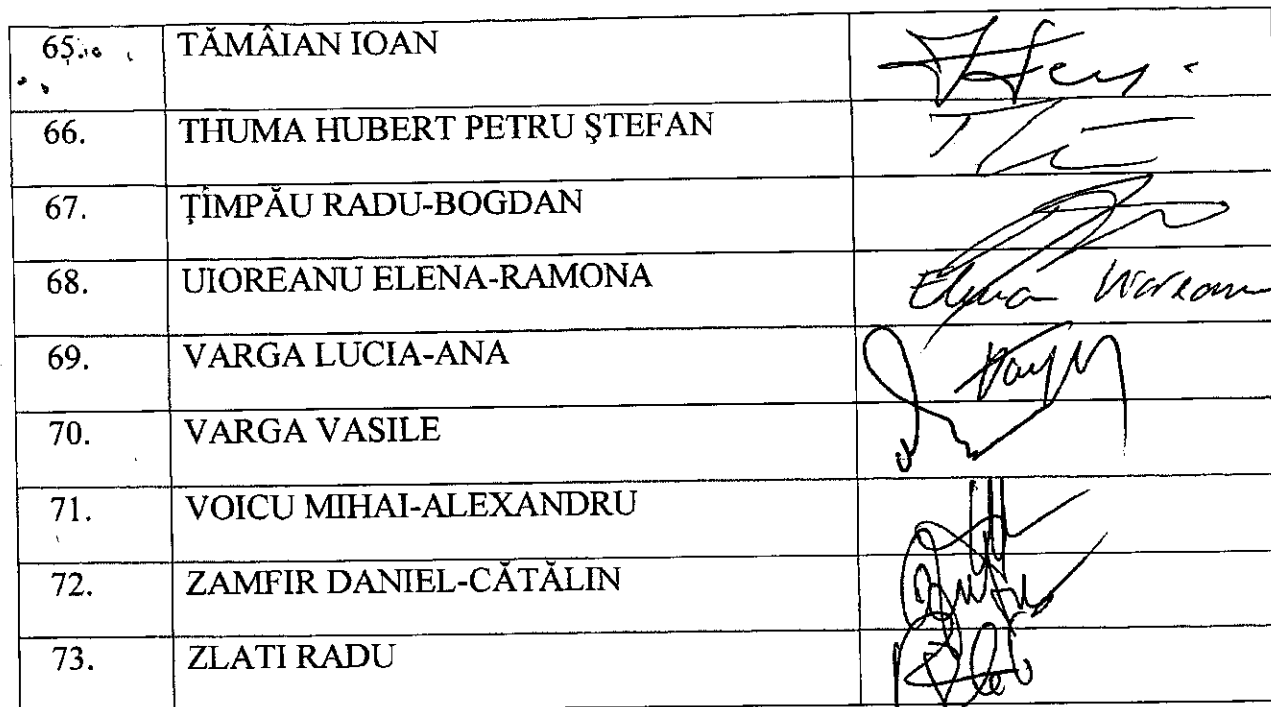 65. TĂMÂIAN IOAN
66. THUMA HUBERT PETRU ŞTEFAN
67. ŢÎMPĂU RADU-BOGDAN
68. UIOREANU ELENA-RAMONA Elena Uioreanu
69. VARGA LUCIA-ANA
70. VARGA VASILE
71. VOICU MIHAI-ALEXANDRU
72. ZAMFIR DANIEL-CĂTĂLIN
73. ZLATI RADU